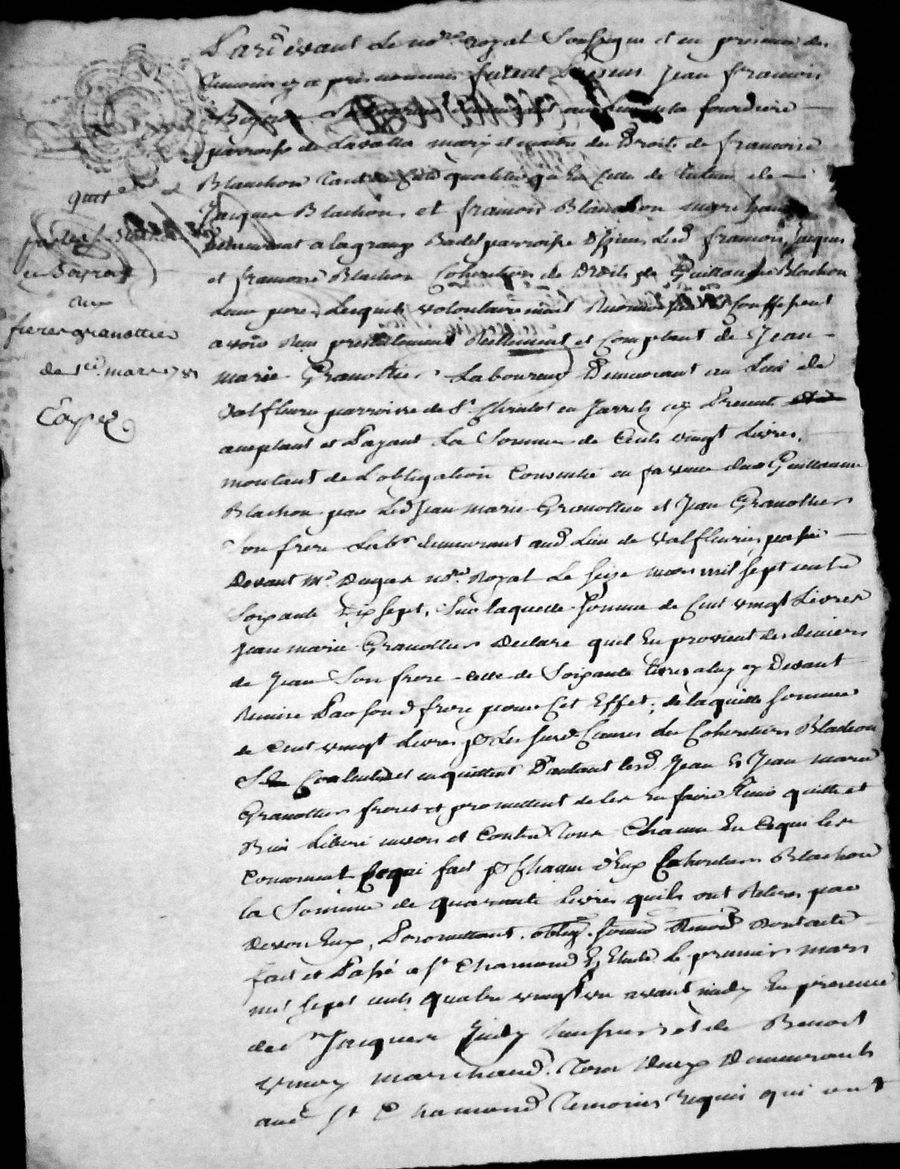 Pard évant le no.re royal Soussigne et en presence des
temoins cy apres nommes furent presens Jean francois
fourdiere
parroisse de Lavalla mary et maitre des Droits de francoise
Blachon tant en cette qualité qu'en celle de tuteur de
Jacques Blachon, et francois Blachon marchand
demeurant a la grange Badel parroisse D'Izieux Led francois, Jacques
et francoise Blachon Coheritiers de Droits de Guillaume Blachon
Leur pere, Lesquels volontairement Confessent
avoir Reçu presentement Reellement et Comptant de Jean
marie Granottier Laboureur Demeurant au Lieu de
Valfleurie parroisse de St. Christot en Jarrets cy Present
acceptant et Payant La Somme de Cent vingt Livres,
montant de L'obligation Consentie en faveur dud Guillaume
Blachon par Led Jean marie Granottier et Jean Granottier
Son frere Lab.r demeurant aud Lieu de Valfleurie, passée
Devant Me. Duguet no.re Royal Le seize mars mil sept cents
Soixante Dix sept, Sur laquelle Somme de Cent vingt Livres
Jean marie Granottier Declare quil En provient des deniers
de Jean Son frere celle de Soixante Livres a luy cy Devant
Remise Par Son d frere pour Cet Effet; de laquelle Somme
de Cent vingt Livres
Se Contentent et en quittent D'autant lesd Jean Et Jean marie
Granottier freres et promettent de les En faire tenir quitte et
envers et Contre Tous Chacun En Ce qui les
Concernent Ce qui fait pr Chacun d'Eux Coheritiers Blachon
la Somme de quarante Livres quils ont Retirés par
devers Eux, Promettant, oblig. Soum. Renon.
fait et Passé a St Chamond Et Etude Le premier mars
mil sept cents quatre vingt un avant midy En presence
de Sr Jacques et de Benoit
marchand, Tous Deux Demeurants
aud St Chamond Temoins Requis qui ont

quitt.ce
par les
a
freres granottier
du 1er mars 1781
Expée